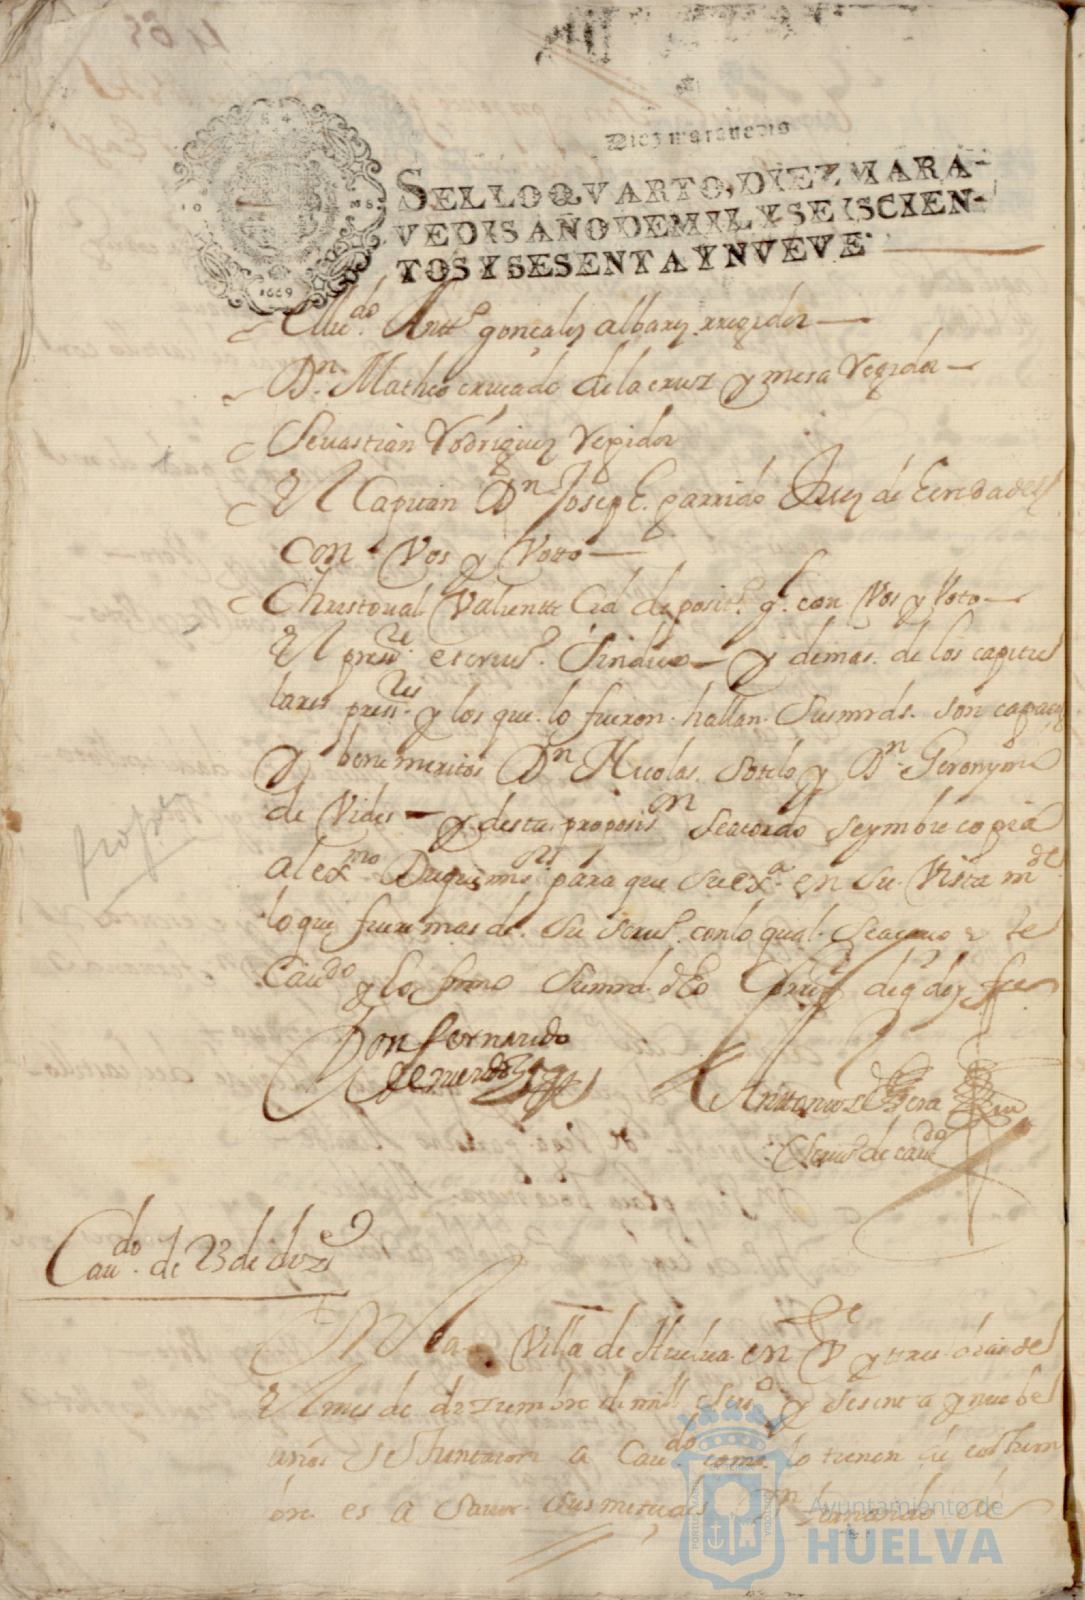 Diez marauedis
SELLO QVARTO, DIEZ MARA-
VEDIS AÑO DE MIL Y SEISCIEN-
TOS Y SESENTA Y NVEVE
1669
gonçales albarez rregidor
Dn. Matheo cruçado de la cruz y mesa Regidor
Seuastian Rodriguez Regidor
El Capitan Dn Joseph garrido Juez de Eeredades
Con Vos y Voto
Christoual Valiente deposit.º gl. con Vos y Voto
El press.te escriu.º Sindico y demas de los capitu
lares press.tes y los que lo fueron hallan Susmrds. son capaçes
y benemeritos Dn Nicolas Sotelo y Dn. Geronymo
de Vides y desta proposis.on se acordo se ymbie copia
al exmo Duque mi s.r para que su exa. en su Vista m.de
lo que fuere mas de su seru.º con lo qual se acauo este
Cau.do y lo firmo Sumrd. de q doy fee
Don fernando
Anttonio de
Scriu.º de cau.do
Cau.do de 23 de diz.e
En la Villa de Huelua en Ve y tres dias del
El mes de diziembre de mill seis.º y sesenta y nuebe
años se Juntaron a Cau.do como lo tienen de costum
bre es a sauer Sus merçedes Dn fernando de
Ayuntamiento de
HUELVA